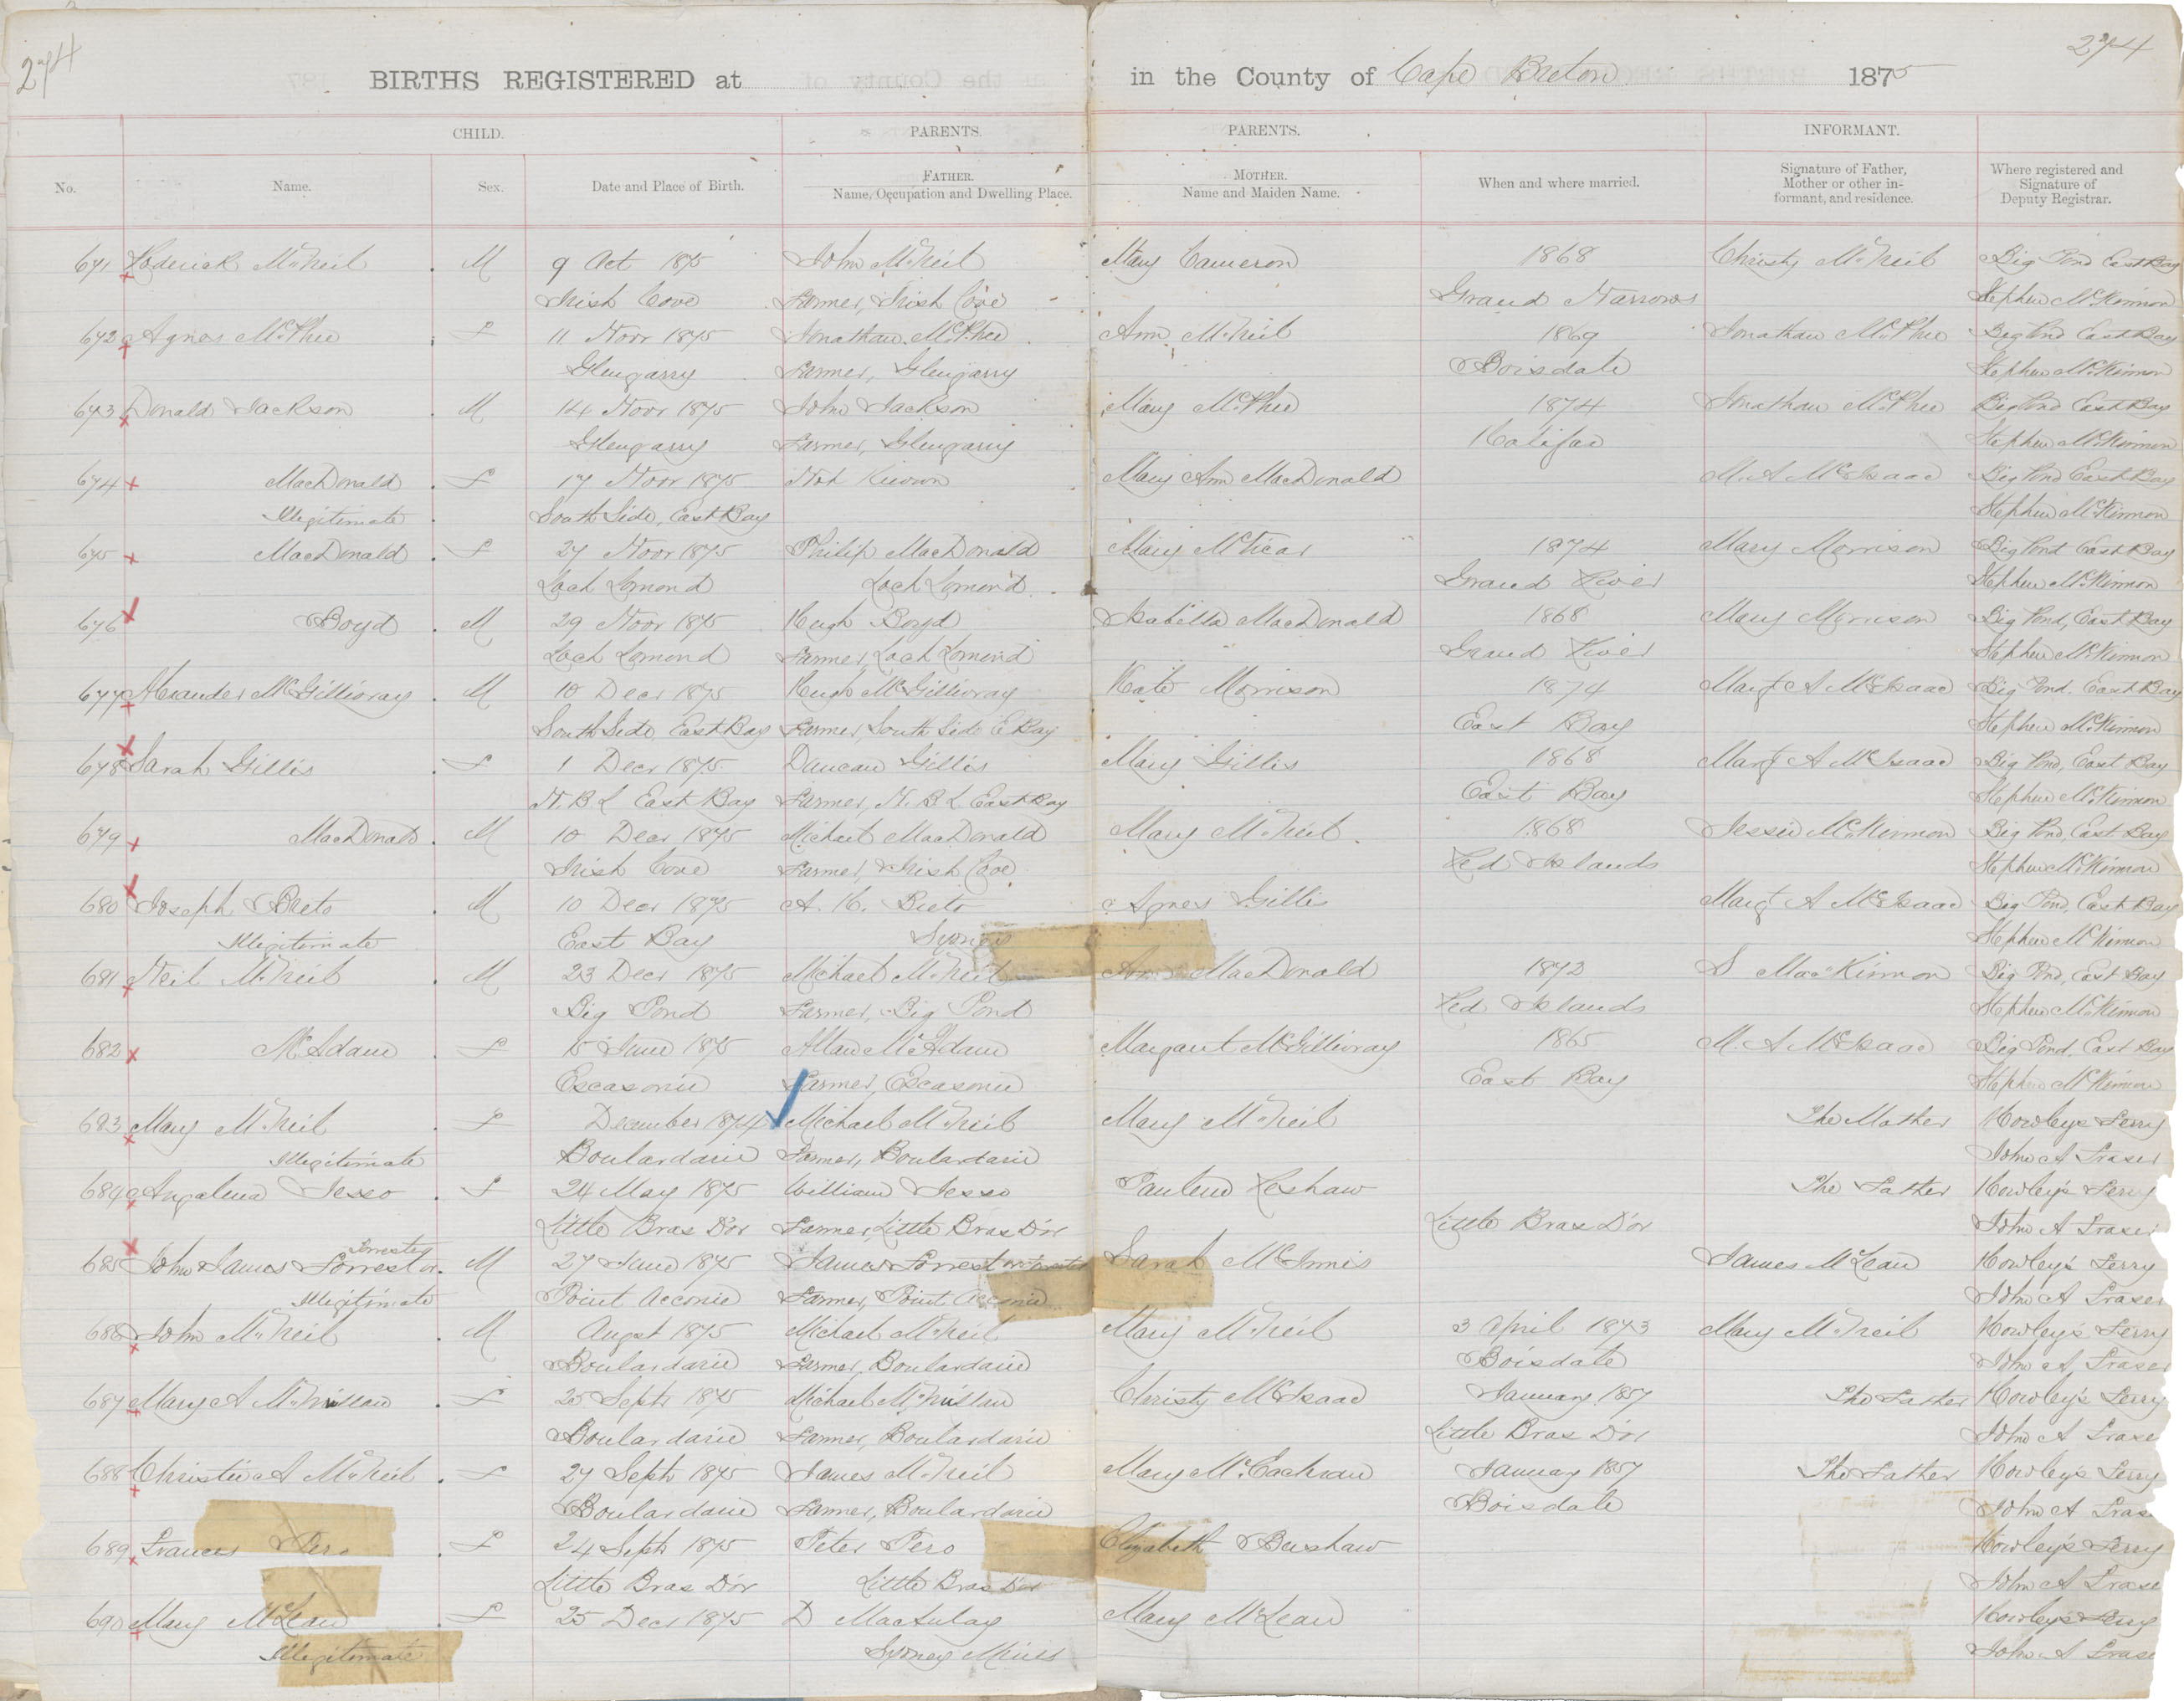 274
274
BIRTHS REGISTERED at in the County of Cape Breton 1875
CHILD. PARENTS. PARENTS. INFORMANT.
No. Name. Sex. Date and Place of Birth. FATHER. Name, Occupation and Dwelling Place. MOTHER. Name and Maiden Name. When and where married. Signature of Father, Mother or other informant, and residence. Where registered and Signature of Deputy Registrar.
671 Roderick McNeil M 9 Oct 1875 John McNeil Mary Cameron 1868 Christy McNeil Big Pond East Bay
Irish Cove Farmer, Irish Cove Grand Narrows Stephen McKinnon
672 Agnes McPhee F 11 Novr 1875 Jonathan McPhee Ann McNeil 1869 Jonathan McPhee Big Pond East Bay
Glengarry Farmer, Glengarry Boisdale Stephen McKinnon
673 Donald Jackson M 14 Novr 1875 John Jackson Mary McPhee 1874 Jonathan McPhee Big Pond East Bay
Glengarry Farmer, Glengarry Halifax Stephen McKinnon
674 MacDonald F 17 Novr 1875 Not Known Mary Ann MacDonald M. A McIsaac Big Pond East Bay
Illegitimate South Side, East Bay Stephen McKinnon
675 MacDonald F 27 Novr 1875 Philip MacDonald Mary McVicar 1874 Mary Morrison Big Pond East Bay
Loch Lomond Loch Lomond Grand River Stephen McKinnon
676 Boyd M 29 Novr 1875 Hugh Boyd Isabella MacDonald 1868 Mary Morrison Big Pond, East Bay
Loch Lomond Farmer, Loch Lomond Grand River Stephen McKinnon
677 Alexander McGillivray M 10 Decr 1875 Hugh McGillivray Kate Morrison 1874 Margt A McIsaac Big Pond, East Bay
South Side East Bay Farmer, South Side E Bay East Bay Stephen McKinnon
678 Sarah Gillis F 1 Decr 1875 Duncan Gillis Mary Gillis 1868 Margt A McIsaac Big Pond, East Bay
N. B L East Bay Farmer, N. B L East Bay East Bay Stephen McKinnon
679 MacDonald M 10 Decr 1875 Michael MacDonald Mary McNeil 1868 Jessie McKinnon Big Pond, East Bay
Irish Cove Farmer, Irish Cove Red Islands Stephen McKinnon
680 Joseph M 10 Decr 1875 Agnes Gillis Margt A McIsaac Big Pond, East Bay
Illegitimate East Bay Sydney Stephen McKinnon
681 Neil McNeil M 23 Decr 1875 Michael McNeil Ann MacDonald 1873 S MacKinnon Big Pond, East Bay
Big Pond Farmer, Big Pond Red Islands Stephen McKinnon
682 McAdam F 15 June 1875 Allan McAdam Margaret McGillivray 1865 M. A McIsaac Big Pond, East Bay
Escasonie Farmer, Escasonie East Bay Stephen McKinnon
683 Mary McNeil F December 1874 Michael McNeil Mary McNeil The Mother Howley's Ferry
Illegitimate Boulardarie Farmer, Boulardarie John A Fraser
684 Angelena Jesso F 24 May 1875 William Jesso The Father Howley's Ferry
Little Bras D'or Farmer, Little Bras D'or Little Bras D'or John A Fraser
Forrester
685 John James Forrester M 27 June 1875 James Forrester Sarah McInnis James McLean Howley's Ferry
Illegitimate Point Acconie Farmer, Point Acconie John A Fraser
686 John McNeil M August 1875 Michael McNeil Mary McNeil 3 April 1873 Mary McNeil Howley's Ferry
Boulardarie Farmer, Boulardarie Boisdale John A Fraser
687 Mary A McMillan F 25 Septr 1875 Michael McMillan Christy McIsaac January 1857 The Father Howley's Ferry
Boulardarie Farmer, Boulardarie Little Bras D'or John A Fraser
688 Christie A McNeil F 27 Septr 1875 James McNeil Mary McEachran January 1857 The Father Howley's Ferry
Boulardarie Farmer, Boulardarie Boisdale John A Fras
689 Frances Pero F 24 Septr 1875 Peter Pero Elizabeth Howley's Ferry
Little Bras D'or Little Bras D'or John A Frase
690 Mary McLean F 25 Decr 1875 D MacAulay Mary McLean Howley's Ferry
Illegitimate Sydney Mines John A Frase